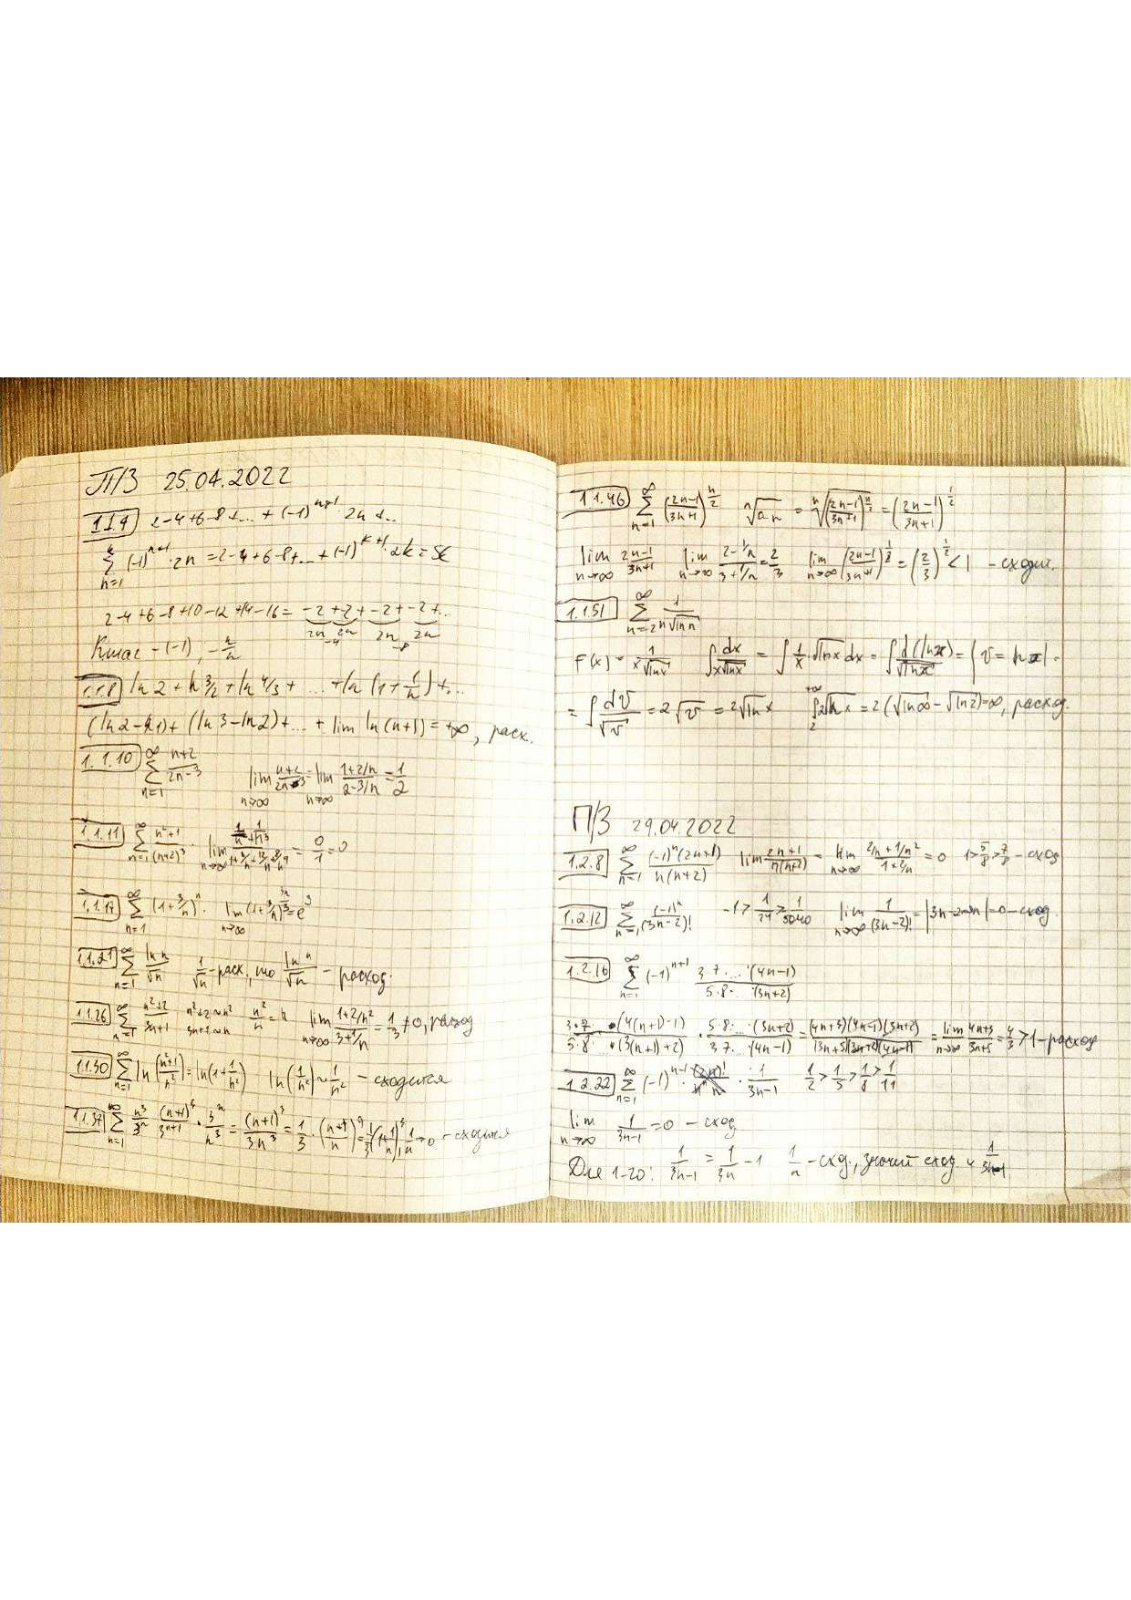 П/З 25.04.2022
1.1.4 2-4+6-8+...+(-1)^{n+1} 2n+..
\sum_{n=1}^{k} (-1)^{n+1}·2n = 2-4+6-8+...+(-1)^{k+1}·2k = Sk
2-4+6-8+10-12+14-16 = -2+2+-2+-2+..
1.1.8 ln 2 + ln 3/2 + ln 4/3 + ... + ln (1+1/n) + ...
(ln2-ln1)+(ln3-ln2)+...+lim ln(n+1) = +∞, расх.
1.1.10 \sum_{n=1}^{∞} \frac{n+2}{2n-3} lim_{n→∞} \frac{n+2}{2n-3} = lim_{n→∞} \frac{1+2/n}{2-3/n} = \frac{1}{2}
1.1.11 \sum_{n=1}^{∞} \frac{n²+1}{(n+2)³} lim_{n→∞} = \frac{0}{1} = 0
\sum_{n=1}^{∞} (1+3/n)^n. lim_{n→∞} (1+3/n) = e³
1.1.21 \sum_{n=1}^{∞} \frac{ln n}{\sqrt{n}} \frac{1}{\sqrt{n}} - расх, то \frac{ln n}{\sqrt{n}} - расход.
1.1.26 \sum_{n=1}^{∞} \frac{n²+2}{3n+1} n²+2~n² 3n+1~n \frac{n²}{n} = n lim_{n→∞} \frac{1+2/n²}{3+1/n} = \frac{1}{3} ≠ 0, расход
1.1.30 \sum_{n=1}^{∞} ln(\frac{n²+1}{n²}) = ln(1+\frac{1}{n²}) ln(\frac{1}{n²}) ~ \frac{1}{n²} - сходится
1.1.37 \sum_{n=1}^{∞} \frac{n³}{3^n} \frac{(n+1)³}{3^{n+1}} · \frac{3^n}{n³} = \frac{(n+1)³}{3n³} = \frac{1}{3} · - сходится
1.1.46 \sum_{n=1}^{∞} (\frac{2n-1}{3n+1})^{n/2} \sqrt[n]{a_n} = \sqrt[n]{(\frac{2n-1}{3n+1})^{n/2}} = (\frac{2n-1}{3n+1})^{1/2}
lim_{n→∞} \frac{2n-1}{3n+1} lim_{n→∞} \frac{2-1/n}{3+1/n} = \frac{2}{3} lim_{n→∞} (\frac{2n-1}{3n+1})^{1/2} = (\frac{2}{3})^{1/2} < 1 - сходит.
1.1.51 \sum_{n=2}^{∞} \frac{1}{n\sqrt{ln n}}
F(x) = \frac{1}{x\sqrt{lnx}} ∫\frac{dx}{x\sqrt{lnx}} = ∫\frac{1}{x}·\sqrt{lnx} dx = ∫\frac{d(lnx)}{\sqrt{lnx}} = {v = ln x} =
= ∫\frac{dv}{\sqrt{v}} = 2\sqrt{v} = 2\sqrt{ln x} ∫_{2}^{+∞} 2\sqrt{ln x} = 2(\sqrt{ln∞} - \sqrt{ln2}) = ∞, расход.
П/З 29.04.2022
1.2.8 \sum_{n=1}^{∞} \frac{(-1)^n (2n+1)}{n(n+2)} lim \frac{2n+1}{n(n+2)} = lim_{n→∞} \frac{2/n+1/n²}{1+2/n} = 0 1>\frac{5}{8}>\frac{7}{8} - сход
1.2.12 \sum_{n=1}^{∞} \frac{(-1)^n}{(3n-2)!} -1>\frac{1}{24}>\frac{1}{5040} lim_{n→∞} \frac{1}{(3n-2)!} = |3n-2→∞| = 0 - сход.
1.2.16 \sum_{n=1}^{∞} (-1)^{n+1} \frac{3·7·...·(4n-1)}{5·8·...·(3n+2)}
\frac{3·7·(4(n+1)-1)}{5·8·(3(n+1)+2)} · \frac{5·8·...·(3n+2)}{3·7·...·(4n-1)} = \frac{(4n+3)(4n-1)(3n+2)}{(3n+5)(3n+2)(4n-1)} = lim_{n→∞} \frac{4n+3}{3n+5} = \frac{4}{3} > 1 - расход
1.2.22 \sum_{n=1}^{∞} (-1)^{n-1} · \frac{1}{3n-1} \frac{1}{2}>\frac{1}{5}>\frac{1}{8}>\frac{1}{11}
lim_{n→∞} \frac{1}{3n-1} = 0 - сход
Для 1-го: \frac{1}{3n-1} = \frac{1}{3n} - 1 \frac{1}{n} - сход., значит сход и \frac{1}{3n-1}